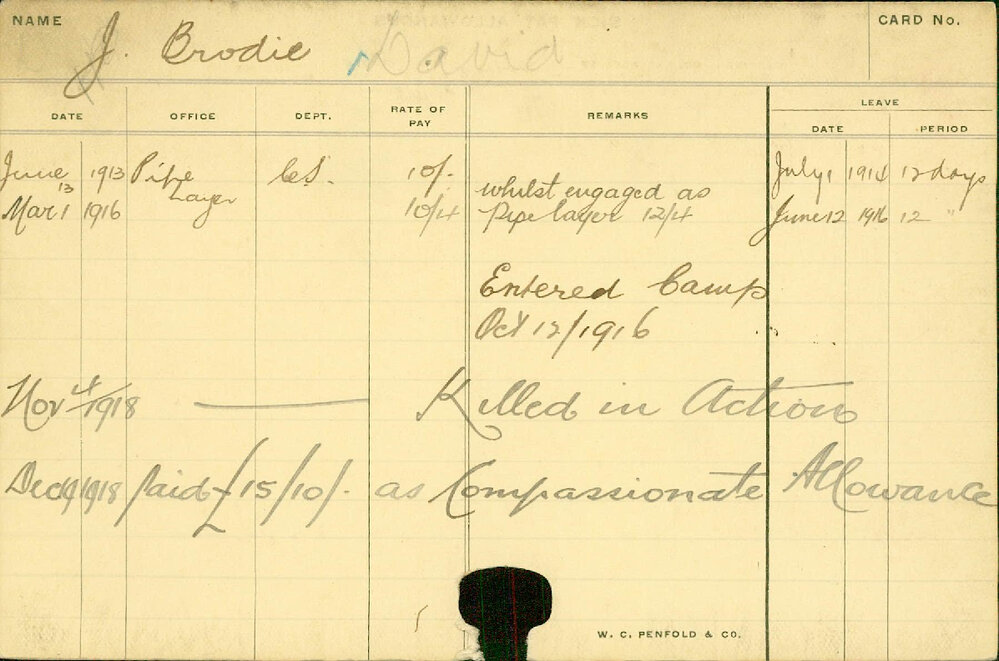 NAME
CARD No.
J. Brodie David
DATE OFFICE DEPT. RATE OF PAY REMARKS LEAVE
DATE PERIOD
June 13 1913 Pipe Layer C.S. 10/- July 1 1914 12 days
Mar 1 1916 10/4 whilst engaged as June 12 1916 12 "
Pipe layer 12/4
Entered Camp
Oct 12/1916
Nov 4/1918 Killed in Action
Dec 19 1918 Paid £15/10/- as Compassionate Allowance
W. C. PENFOLD & CO.